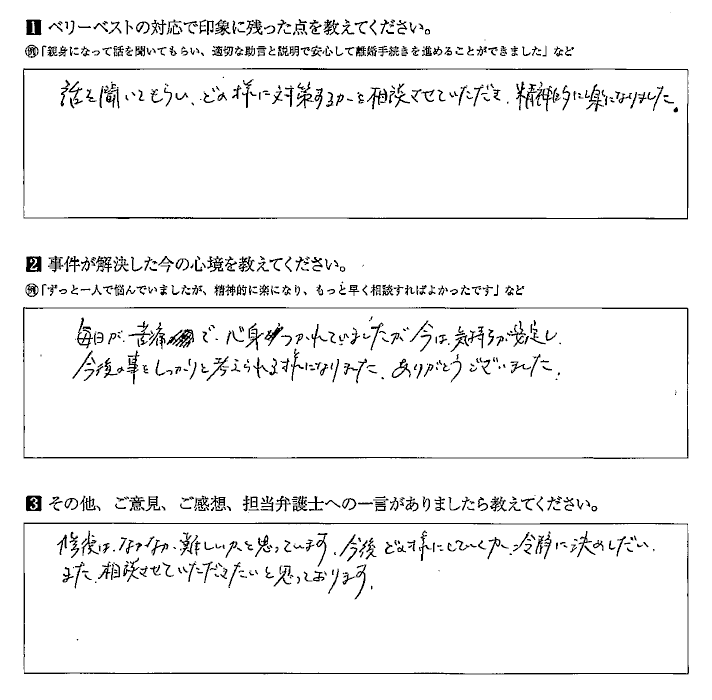 1 ベリーベストの対応で印象に残った点を教えてください。
例「親身になって話を聞いてもらい、適切な助言と説明で安心して離婚手続きを進めることができました」など
話を聞いてもらい、どの様に対策するかを相談させていただき、精神的に楽になりました。
2 事件が解決した今の心境を教えてください。
例「ずっと一人で悩んでいましたが、精神的に楽になり、もっと早く相談すればよかったです」など
毎日が、苦痛で、心身つかれていましたが今は、気持ちが安定し、
今後の事をしっかりと考えられる様になりました。ありがとうございました。
3 その他、ご意見、ご感想、担当弁護士への一言がありましたら教えてください。
修復は、なかなか、難しいかと思っています。今後どの様にしていくか、冷静に決めしだい、
また、相談させていただきたいと思っております。